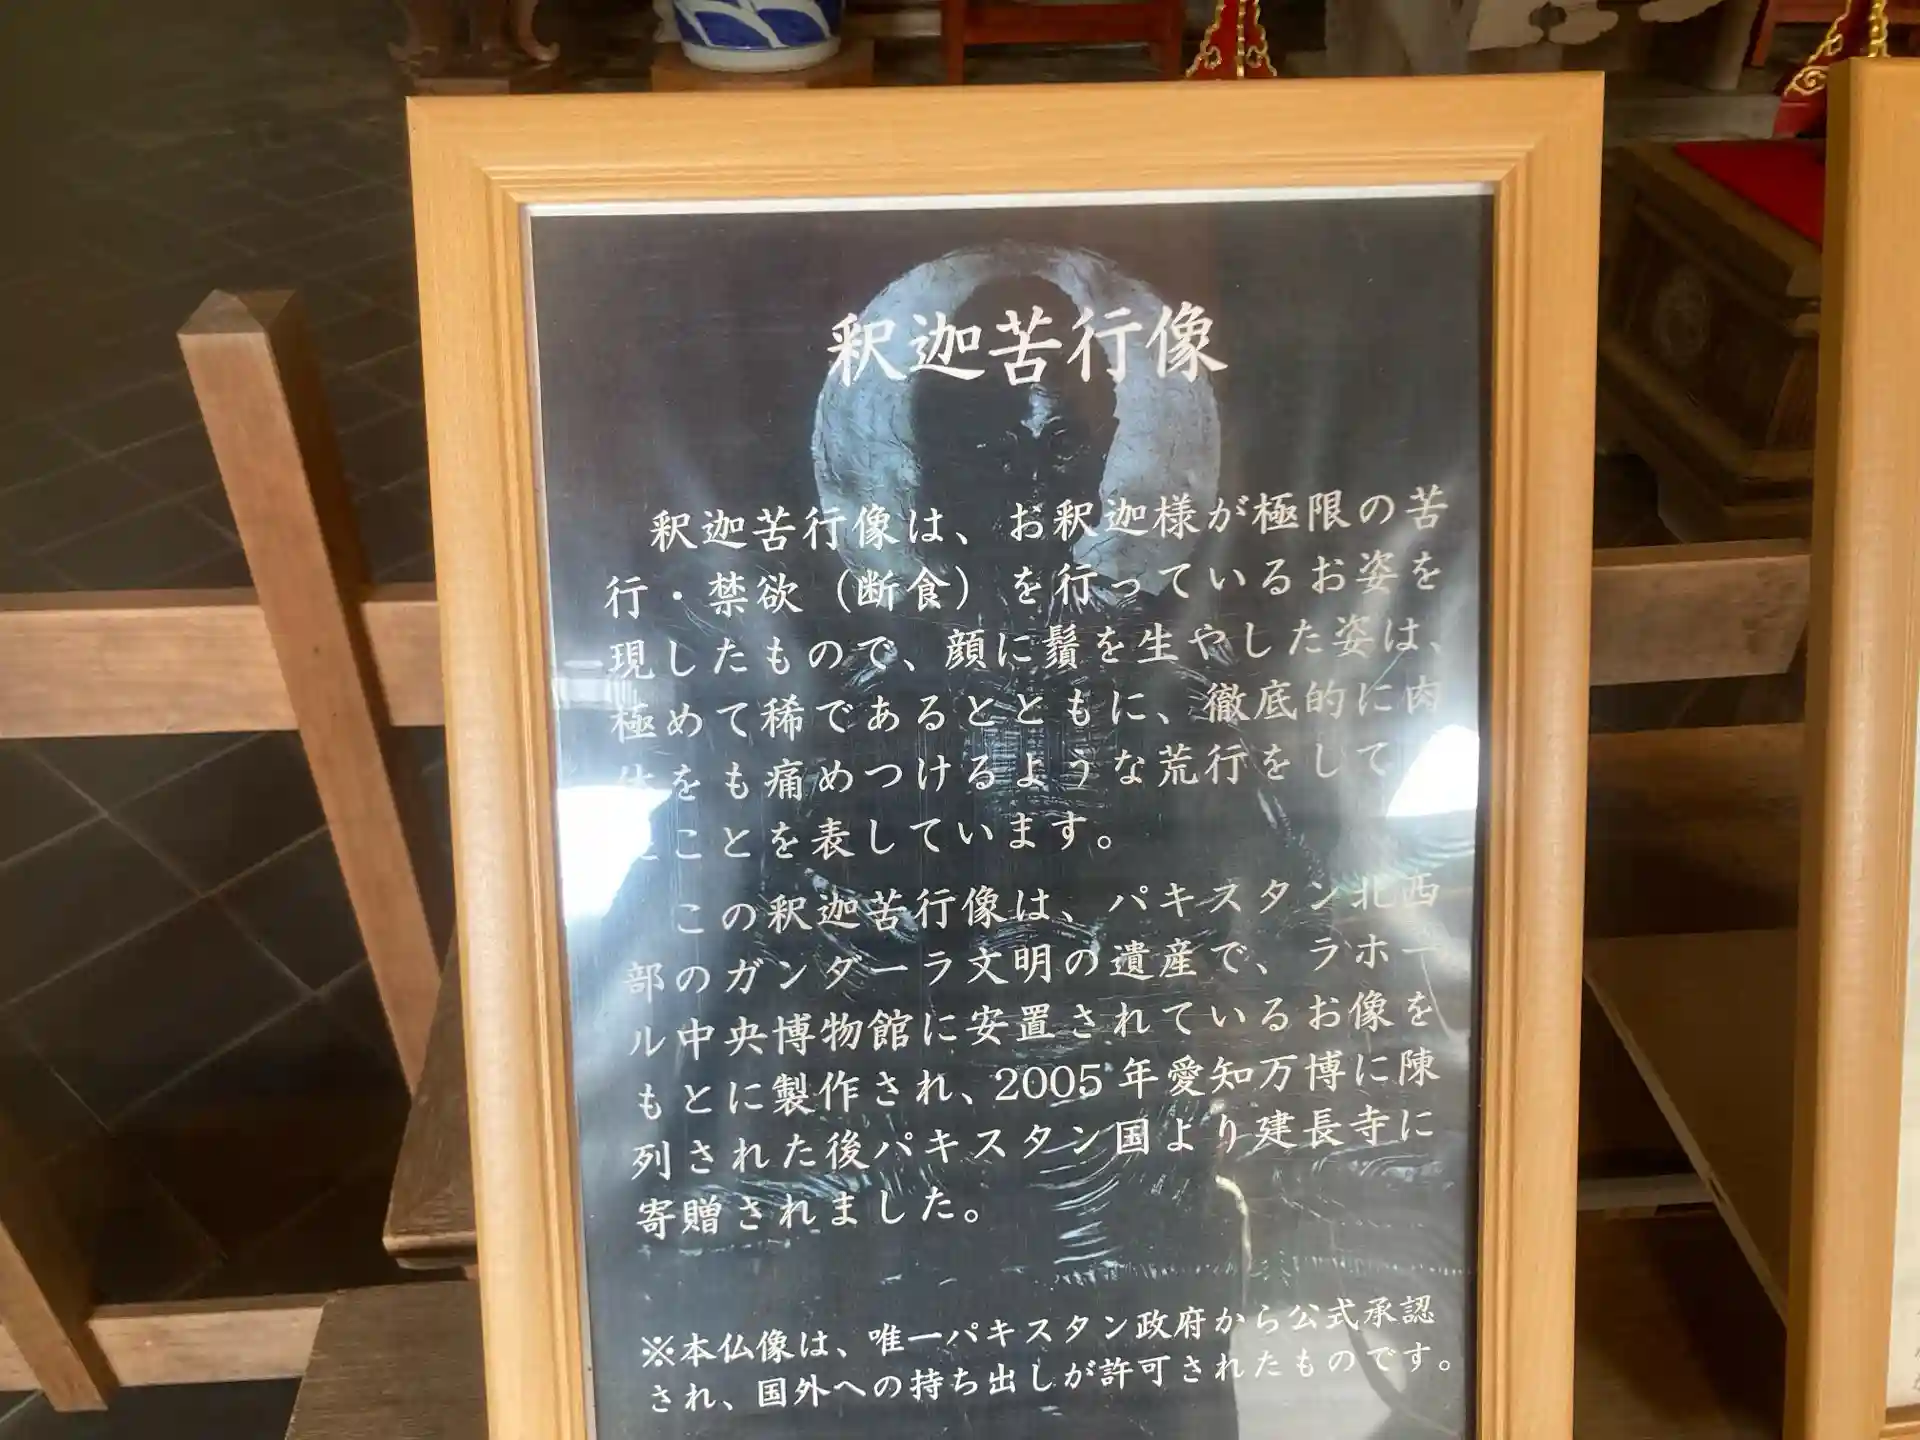 釈迦苦行像
釈迦苦行像は、お釈迦様が極限の苦
行・禁欲（断食）を行っているお姿を
現したもので、顔に鬚を生やした姿は、
極めて稀であるとともに、徹底的に肉
体をも痛めつけるような荒行をして
たことを表しています。
この釈迦苦行像は、パキスタン北西
部のガンダーラ文明の遺産で、ラホー
ル中央博物館に安置されているお像を
もとに製作され、2005年愛知万博に陳
列された後パキスタン国より建長寺に
寄贈されました。
※本仏像は、唯一パキスタン政府から公式承認
され、国外への持ち出しが許可されたものです。